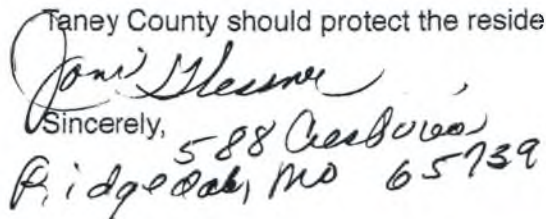 Taney County should protect the reside
Joni Glessner
Sincerely,
588
Ridgedale, MO 65739